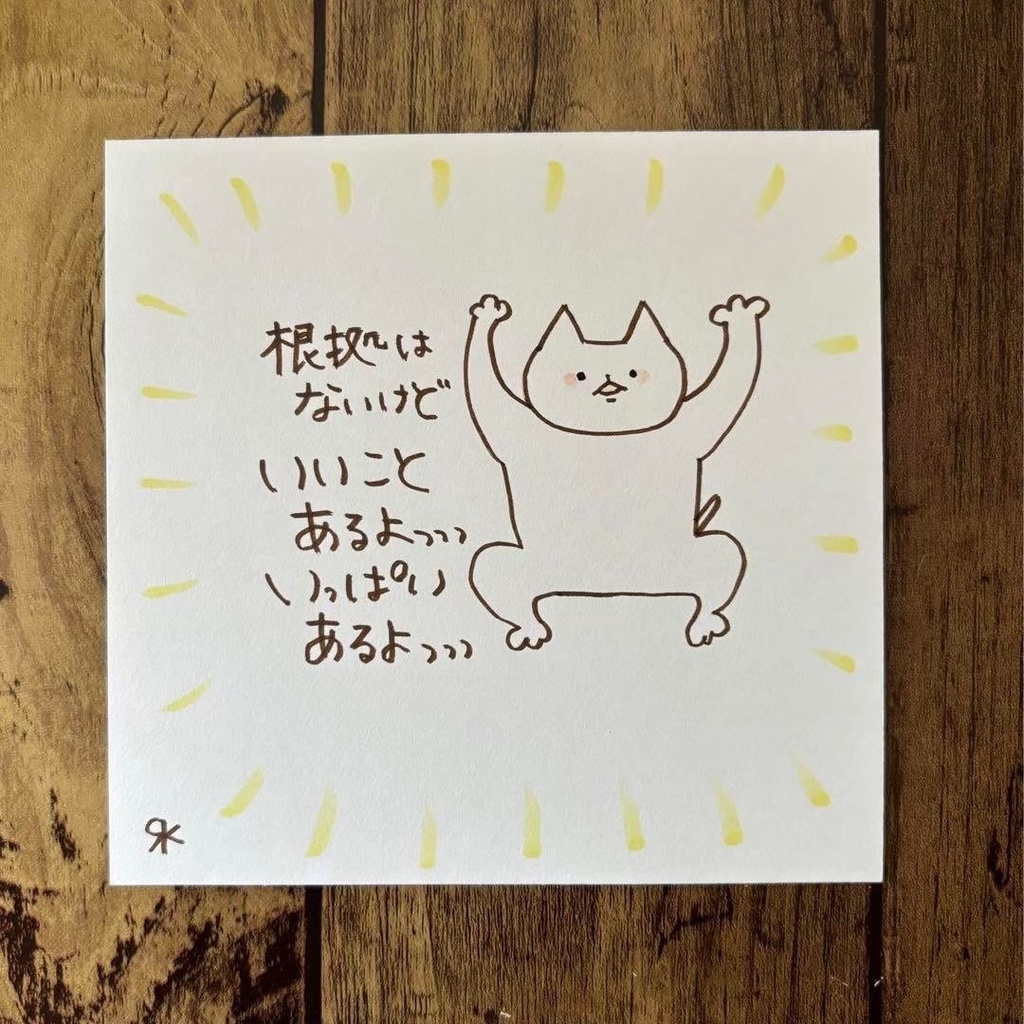 根拠は
ないけど
いいこと
あるよっっっ
いっぱい
あるよっっっ